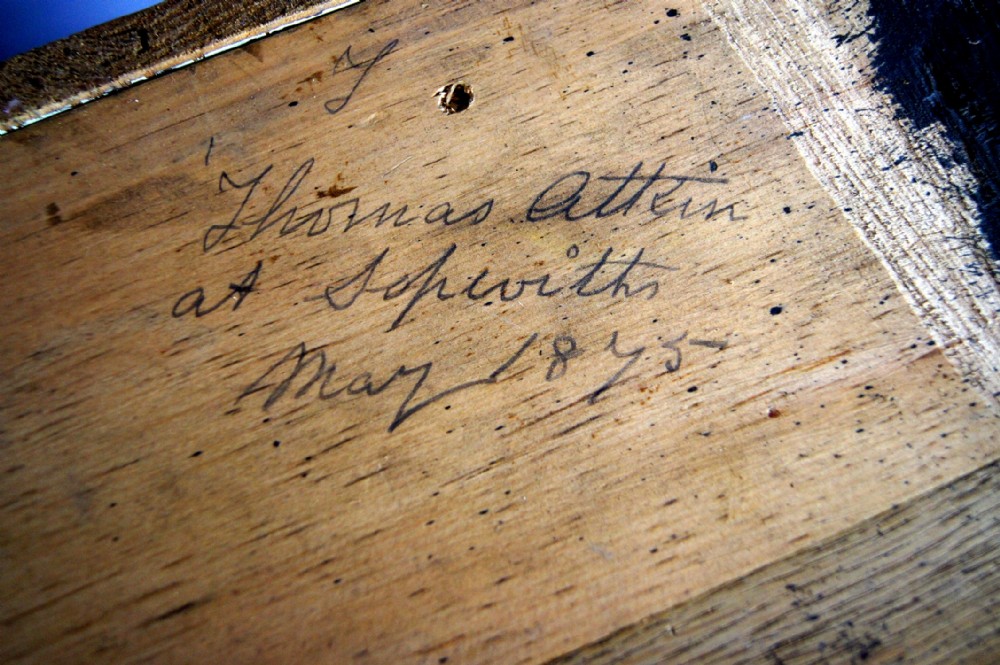 T
Thomas Attkin
at Sopwiths
May 1875